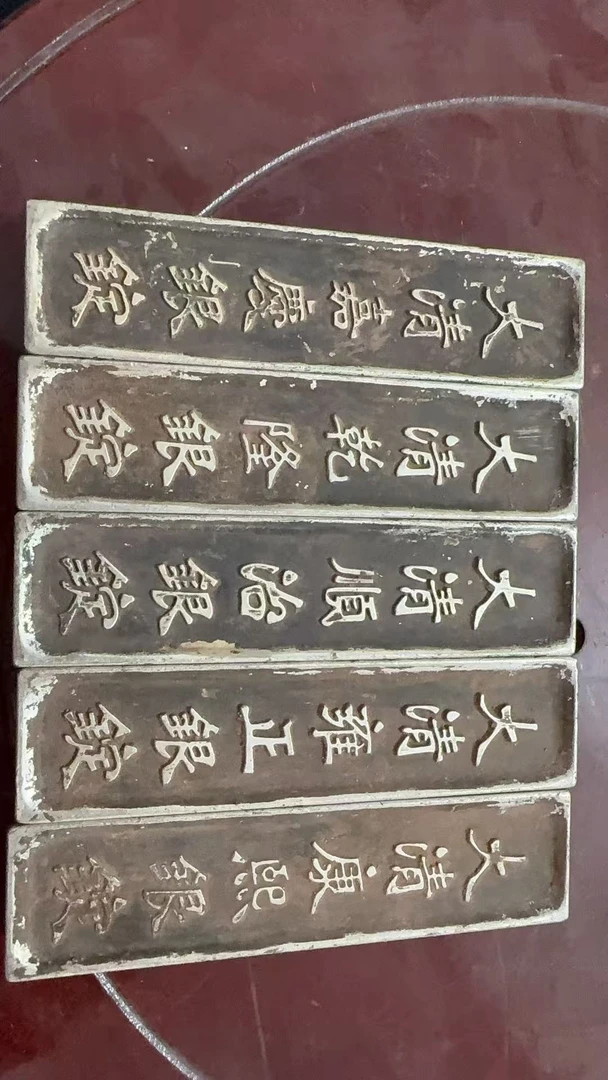 大清嘉慶銀錠
大清乾隆銀錠
大清順治銀錠
大清雍正銀錠
大清康熙銀錠